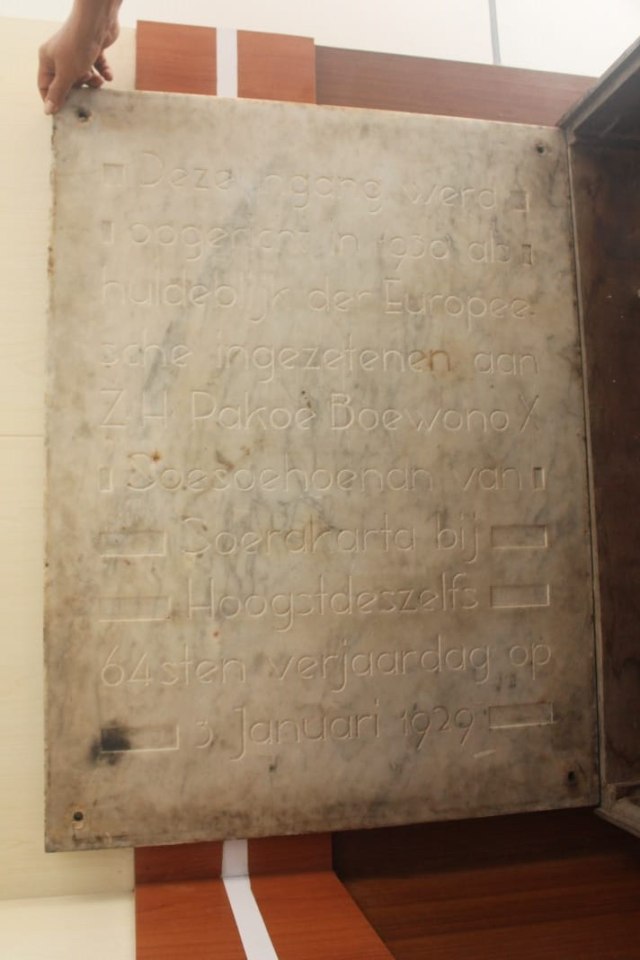 Deze ingang werd
opgericht in 1930 als
huldeblijk der Europee-
sche ingezetenen aan
Z.H. Pakoe Boewono X
Soesoehoenan van
Soerakarta bij
Hoogstdeszelfs
64sten verjaardag op
3 Januari 1929